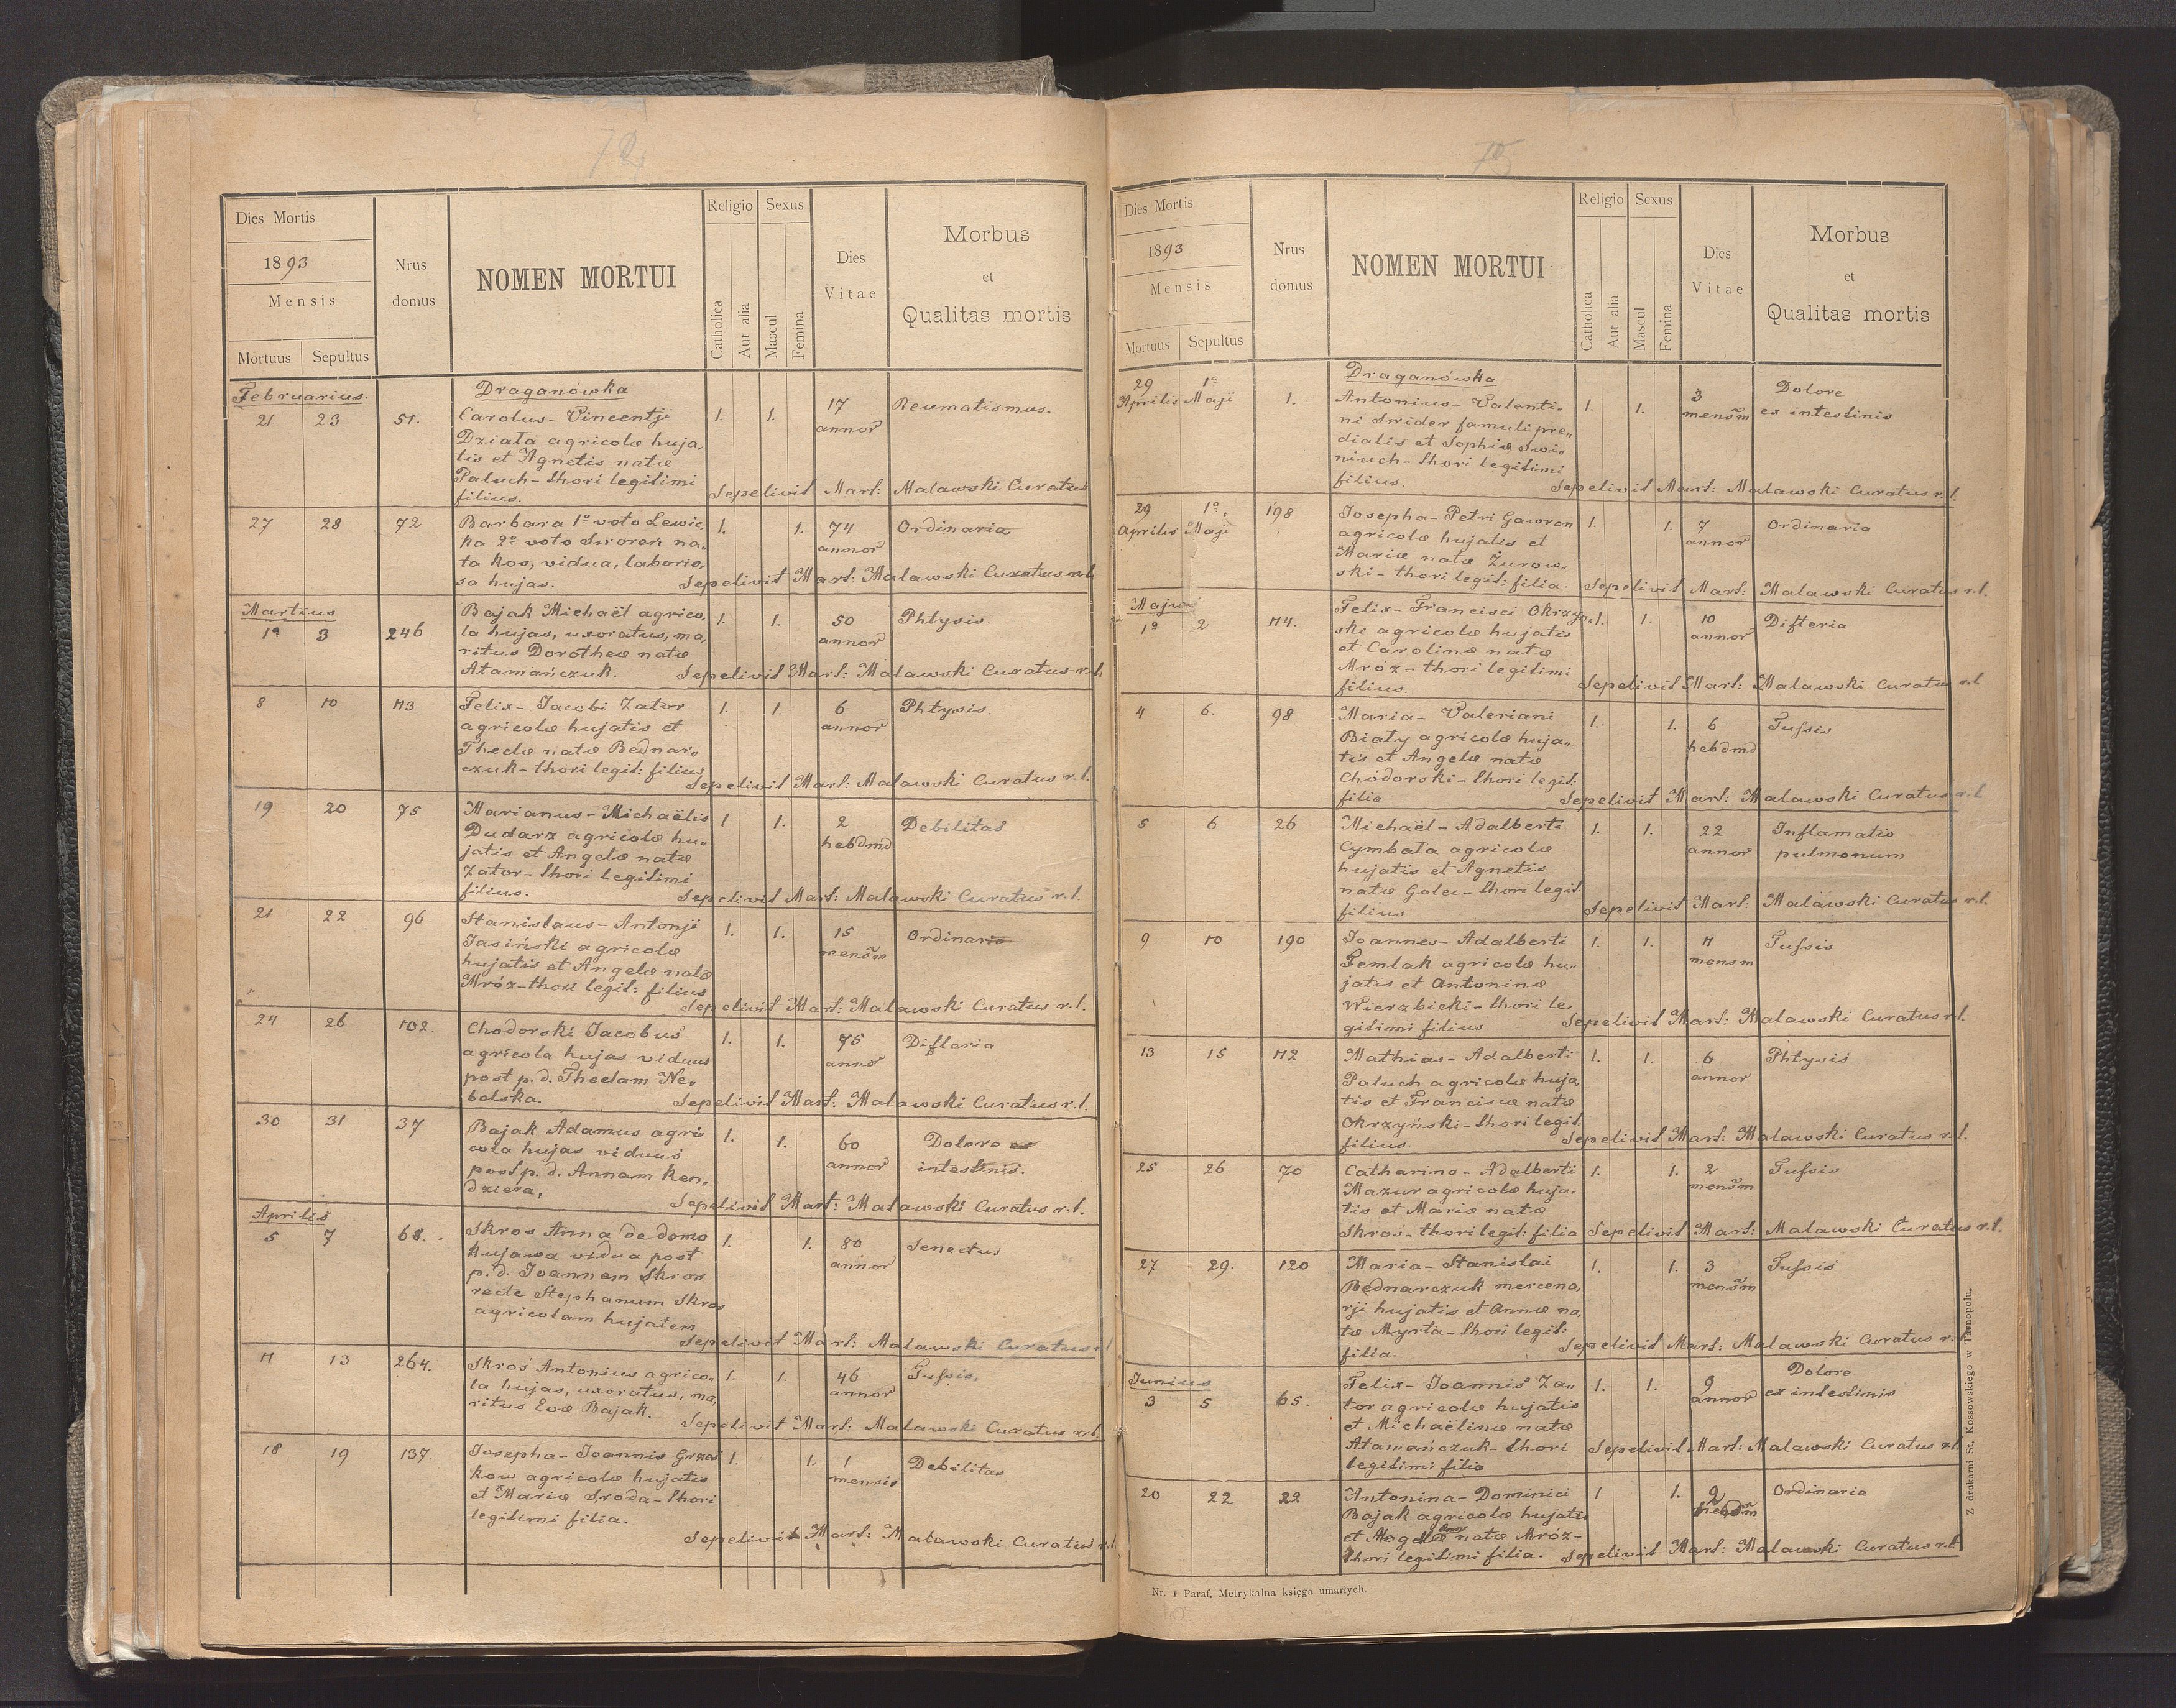 74
Dies Mortis
1893
Mensis
Mortuus Sepultus
Nrus domus
NOMEN MORTUI
Religio
Catholica
Aut alia
Sexus
Mascul
Femina
Dies Vitae
Morbus
et
Qualitas mortis
Februarius.
Draganówka
21 23 51. Carolus - Vincentji 1. 1. 17 annor Reumatismus.
Działa agricolæ huja,
tis et Agnetis natæ
Paluch - thori legitimi
filius. Sepelivit Mart: Malawski Curatus
27 28 72 Barbara 1º voto Lewic, 1. 1. 74 annor Ordinaria
ka 2º voto Sworen na„
ta Kos, vidua, laborio,
sa hujas. Sepelivit Mart: Malawski Curatus r.l.
Martius
1ª 3 246 Bajak Michaël agrico, 1. 1. 50 annor Phtysis
la hujas, uxoratus, ma,
ritus Dorotheæ natæ
Atamańczuk. Sepelivit Mart: Malawski Curatus r.l.
8 10 113 Felix - Jacobi Zator 1. 1. 6 annor Phtysis.
agricolæ hujatis et
Theclæ natæ Bednar„
czuk - thori legit: filius
Sepelivit Mart: Malawski Curatus r.l.
19 20 75 Marianus - Michaëlis 1 1. 2 hebdmd Debilitas
Dudarz agricolæ hu„
jatis et Angelæ natæ
Zator - thori legitimi
filius. Sepelivit Mart: Malawski Curatus r.l.
21 22 96 Stanislaus - Antonji 1. 1. 15 mensm Ordinaria
Jasiński agricolæ
hujatis et Angelæ natæ
Mróz - thori legit: filius
Sepelivit Mart: Malawski Curatus r.l.
24 26 102. Chodorski Jacobus 1. 1. 75 annor Difteria
agricola hujas viduus
post p. d. Theclam Ne,
bolska. Sepelivit Mart: Malawski Curatus r.l.
30 31 37 Bajak Adamus agri 1. 1. 60 annor Dolore ex
cola hujas viduus intestinis.
post p. d. Annam Ken,
dziera, Sepelivit Mart: Malawski Curatus r.l.
Aprilis
5 7 68. Skros Anna de domo 1. 1. 80 annor Senectus
Kujawa vidua post
p. d. Joannem Skros
recte Stephanum Skros
agricolam hujatem
Sepelivit Mart: Malawski Curatus r.l
11 13 264. Skroś Antonius agrico„ 1. 1. 46 annor Tussis.
la hujas, uxoratus, ma,
ritus Evæ Bajak.
Sepelivit Mart: Malawski Curatus r.l.
18 19 137. Josepha - Joannis Grzes 1. 1. 1 mensis Debilitas
kow agricolæ hujatis
et Mariæ Sroda - thori
legitimi filia.
Sepelivit Mart: Malawski Curatus r.l.
75
Dies Mortis
1893
Mensis
Mortuus Sepultus
Nrus domus
NOMEN MORTUI
Religio
Catholica
Aut alia
Sexus
Mascul
Femina
Dies Vitae
Morbus
et
Qualitas mortis
Draganówka
29 Aprilis 1ª Maji 1. Antonius - Valenti- 1. 1. 3 mensm Dolore
ni Swider famuli præ„ ex intestinis
dialis et Sophiæ Swi„
niuch - thori legitimi
filius. Sepelivit Mart: Malawski Curatus r.l.
29 Aprilis 1ª Maji 198 Josepha - Petri Gawron 1. 1. 7 annor Ordinaria
agricolæ hujatis et
Mariæ natæ Żurow„
ski - thori legit: filia. Sepelivit Mart: Malawski Curatus r.l.
Majus
1ª 2 114. Felix - Francisci Okrzyn„ 1. 1. 10 annor Difteria
ski agricolæ hujatis
et Carolinæ natæ
Mróz - thori legitimi
filius. Sepelivit Mart: Malawski Curatus r.l.
4 6. 98 Maria - Valeriani 1. 1. 6 hebdmd Tussis
Biały agricolæ huja„
tis et Angelæ natæ
Chodorski - thori legit:
filia Sepelivit Mart: Malawski Curatus r.l
5 6 26 Michaël - Adalberti 1. 1. 22 annor Inflamatio
Cymbała agricolæ pulmonum
hujatis et Agnetis
natæ Golec - thori legit
filius Sepelivit Mart: Malawski Curatus r.l.
9 10 190 Joannes - Adalberti 1. 1. 11 mensm Tussis
Femlak agricolæ hu„
jatis et Antoninæ
Wierzbicki - thori le,
gitimi filius Sepelivit Mart: Malawski Curatus r.l.
13 15 112 Mathias - Adalberti 1. 1. 6 annor Phtysis
Paluch agricolæ huja,
tis et Franciscæ natæ
Okrzyński - thori legit:
filius. Sepelivit Mart: Malawski Curatus r.l.
25 26 70 Catharina - Adalberti 1. 1. 2 mensm Tussis
Mazur agricolæ huja,
tis et Mariæ natæ
Skros - thori legit: filia Sepelivit Mart: Malawski Curatus r.l.
27 29. 120 Maria - Stanislai 1. 1. 3 mensm Tussis
Bednarczuk mercena,
rji hujatis et Annæ na,
tæ Myrta - thori legit:
filia. Sepelivit Mart: Malawski Curatus r.l.
Junius
3 5 65. Felix - Joannis Za„ 1. 1. 9 annor Dolore
tor agricolæ hujatis ex intestinis
et Michaëlinæ natæ
Atamańczuk - thori Sepelivit Mart: Malawski Curatus r.l.
legitimi filia
20 22 22 Antonina - Dominici 1 1. 2 hebdm Ordinaria
Bajak agricolæ hujatis
et Magdalenæ natæ Mróz -
thori legitimi filia. Sepelivit Mart: Malawski Curatus r.l.
Nr. 1 Paraf. Metrykalna księga umarłych.
Z drukarni St. Kossowskiego w Tarnopolu.